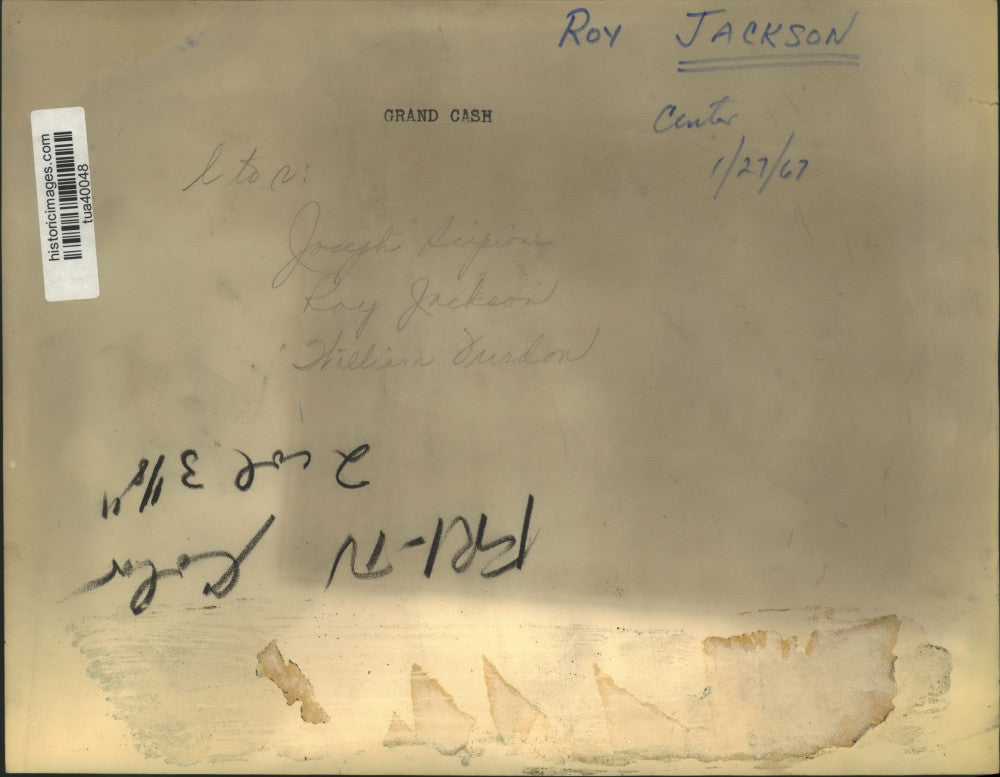 Roy JACKSON
GRAND CASH
Center
1/27/67
historicimages.com
tua40048
l to r:
Joseph Scipione
Roy Jackson
William
2 col 3 1/8"
FRI-TV
Color